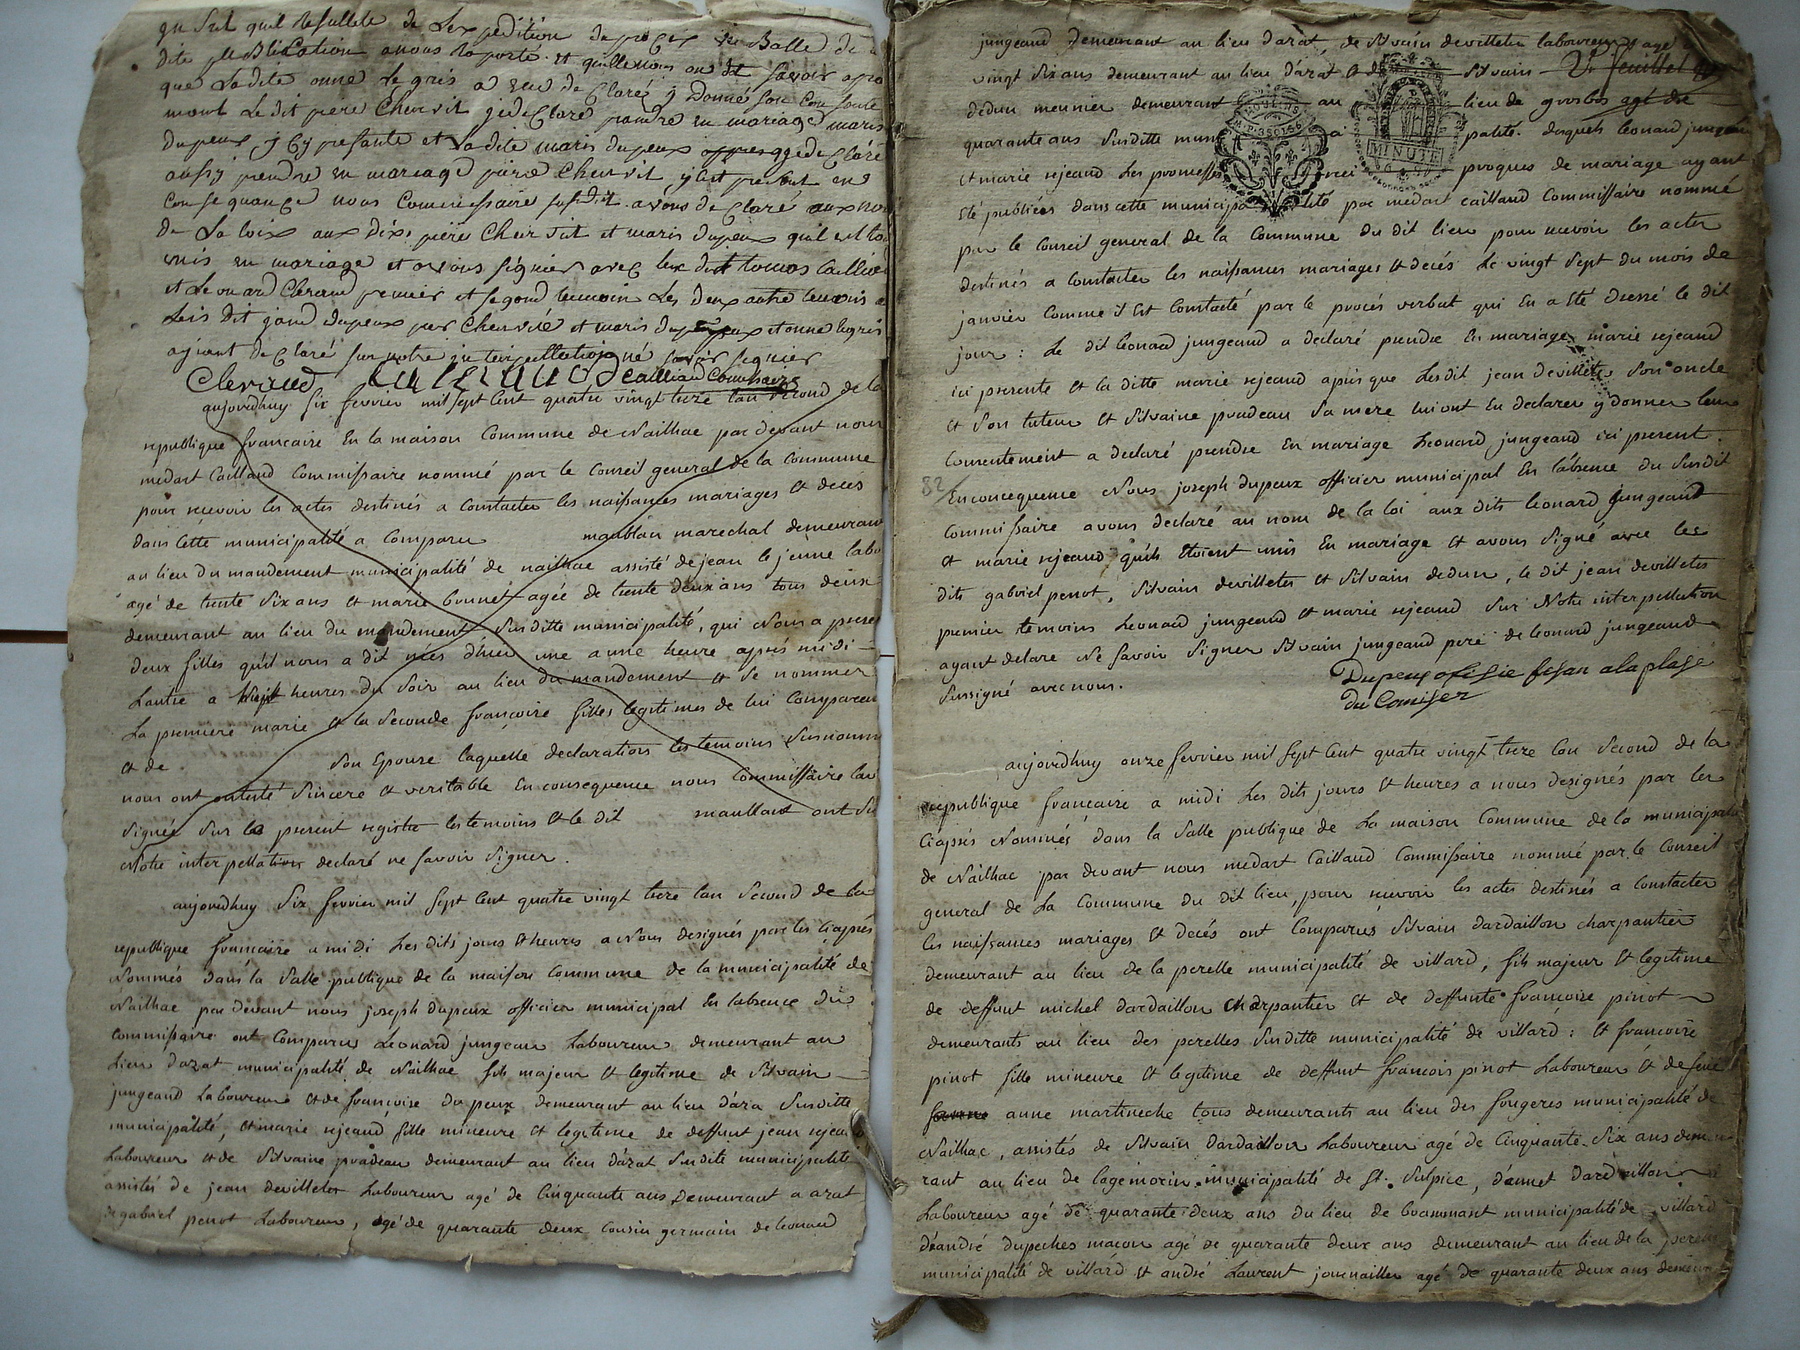 qu'il Resullete de Lexpédition du proces ver Balle de
dite publication anous raporté. et quille nous on dit savoir apro
que Ladite anne Legris a eu de Claré y Donné son Con sente
mant Le dit piere Chenvit je de Claré prandre En mariage maris
dupeux y Cy presante et La dite maris dupeux de Claré
aussy prendre en mariage piere Chenvit y Cit present en
Con se quance nous Commissaire susdit avons de Claré aux no
de La loix aux dix piere Chenvit et maris dupeux quil est to
unis en mariage et avons signier avec lex dit tomas Calliau
et Leonard Cleraud premier et segond temoin Les deux autre temoins
ayant de Claré sur notre interpellation né savoir signier
Cleraud Calliaud Cailliaud Commisaire
aujourdhuy six fevrier mil sept cent quatre vingt treze lan second de la
republique francaise En la maison Commune de Nailhac par devant nous
medart Caillaud Commissaire nommé par le Conseil general de la Commune
pour recevoir les actes destinés a Constater les naissances mariages et deces
dans Cette municipalité a Comparu maublan marechal demeurant
au lieu du mandement municipalité de naillac assisté de jean le jeune labo
agé de trente six ans et marie bonnet agée de trente deux ans tous deux
demeurant au lieu du mandement susditte municipalité, qui Nous a presen
deux filles qu'il nous a dit nées d'hier une a une heure aprés midi
Lautre a huit heures du soir au lieu du mandement et se nommer
La premiere marie et la seconde francoise filles legitimes de lui Comparen
et de son Epouse laquelle declaration les temoins susnomm
nous ont attesté sincere et veritable En consequence nous Commissaire lav
signée sur le present registre les temoins et le dit maublant ont su
Notre interpellation declaré ne savoir signer.
aujourdhuy six fevrier mil sept cent quatre vingt treze lan second de la
republique francaise a midi Les dits jours et heures a Nous designés par les Ciaprés
Nommés dans la salle publique de la maison Commune de la municipalité de
Nailhac par devant nous joseph dupeux officier municipal En labsence du
Commissaire ont Comparu Leonard jungeau Laboureur demeurant au
Lieu dazat municipalité de Nailhac fils majeur et legitime de Silvain
jungeand Laboureur et de francoise du peux demeurant au lieu d'aza susditte
municipalité, et marie rejeaud fille mineure et legitime de deffunt jean rejeau
Laboureur et de Silvaine pradeau demeurant au lieu d'azat susdite municipalité
assistés de jean devilletes Laboureur agé de Cinquante ans demeurant a azat
de gabriel penot Laboureur, agé de quarante deux Cousin germain de leonard
jungeand demeurant au lieu dazat, de Silvain devilletes laboureur agé
vingt six ans demeurant au lieu d'azat et de Silvain
dedun meunier demeurant au lieu de grosbos agé de
quarante ans susditte muni palité. desquels leonard jungeau
et marie rejeaud Les promesses reci proques de mariage ayant
Eté publiées dans cette municipalité par medart caillaud Commissaire nommé
par le Conseil general de la Commune du dit lieu pour recevoir les actes
destinés a Constater les naissances mariages et decés Le vingt sept du mois de
janvier Comme il Est Constaté par le procés verbal qui En a Eté dressé le dit
jour: Le dit leonard jungeand a declaré prendre En mariage marie rejeaud
ici presente et la ditte marie rejeaud aprés que Lesdit jean devilletes son oncle
et son tuteur et Silvaine pradeau sa mere lui ont En declarer y donner leur
Consentement a declaré prendre En mariage Leonard jungeand ici present.
82
En concequence Nous joseph dupeux officier municipal En l'absence du susdit
Commissaire avons declaré au nom de la loi aux dits leonard jungeand
et marie rejeaud qu'ils Etoient unis En mariage et avons signé avec les
dits gabriel penot, Silvain devilletes et Silvain dedun, le dit jean devilletes
premier temoins Leonard jungeand et marie rejeaud sur Notre interpellation
ayant declaré Ne savoir signer Silvain jungeand pere de leonard jungeand
sussigné avec nous.
Dupeux ofisie fesan a la plase
du Comiser
aujourdhuy onze fevrier mil sept cent quatre vingt treze lan second de la
republique francaise a midi Les dits jours et heures a nous designés par les
Ciaprés Nommés dans la salle publique de la maison Commune de la municipalité
de Nailhac par devant nous medart Caillaud Commissaire nommé par le Conseil
general de La Commune du dit lieu, pour recevoir les actes destinés a Constater
les naissances mariages et decés ont Comparus Silvain dardaillon charpantier
demeurant au lieu de la perelle municipalité de villard, fils majeur et legitime
de deffunt michel dardaillon charpantier et de deffunte francoise pinot
demeurants au lieu des perelles susditte municipalité de villard: et francoise
pinot fille mineure et legitime de deffunt francois pinot Laboureur et de feue
anne martineche tous demeurants au lieu des fougeres municipalité de
Nailhac, assistés de Silvain dardaillon Laboureur agé de Cinquante six ans demeu
rant au lieu de lagemorin municipalité de St. Sulpice, d'annet dardaillon
Laboureur agé de quarante deux ans du lieu de municipalité de villard
d'andré dupeches macon agé de quarante deux ans demeurant au lieu de la perelle
municipalité de villard et andré Laurent journallier agé de quarante deux ans demeur
MINUTE